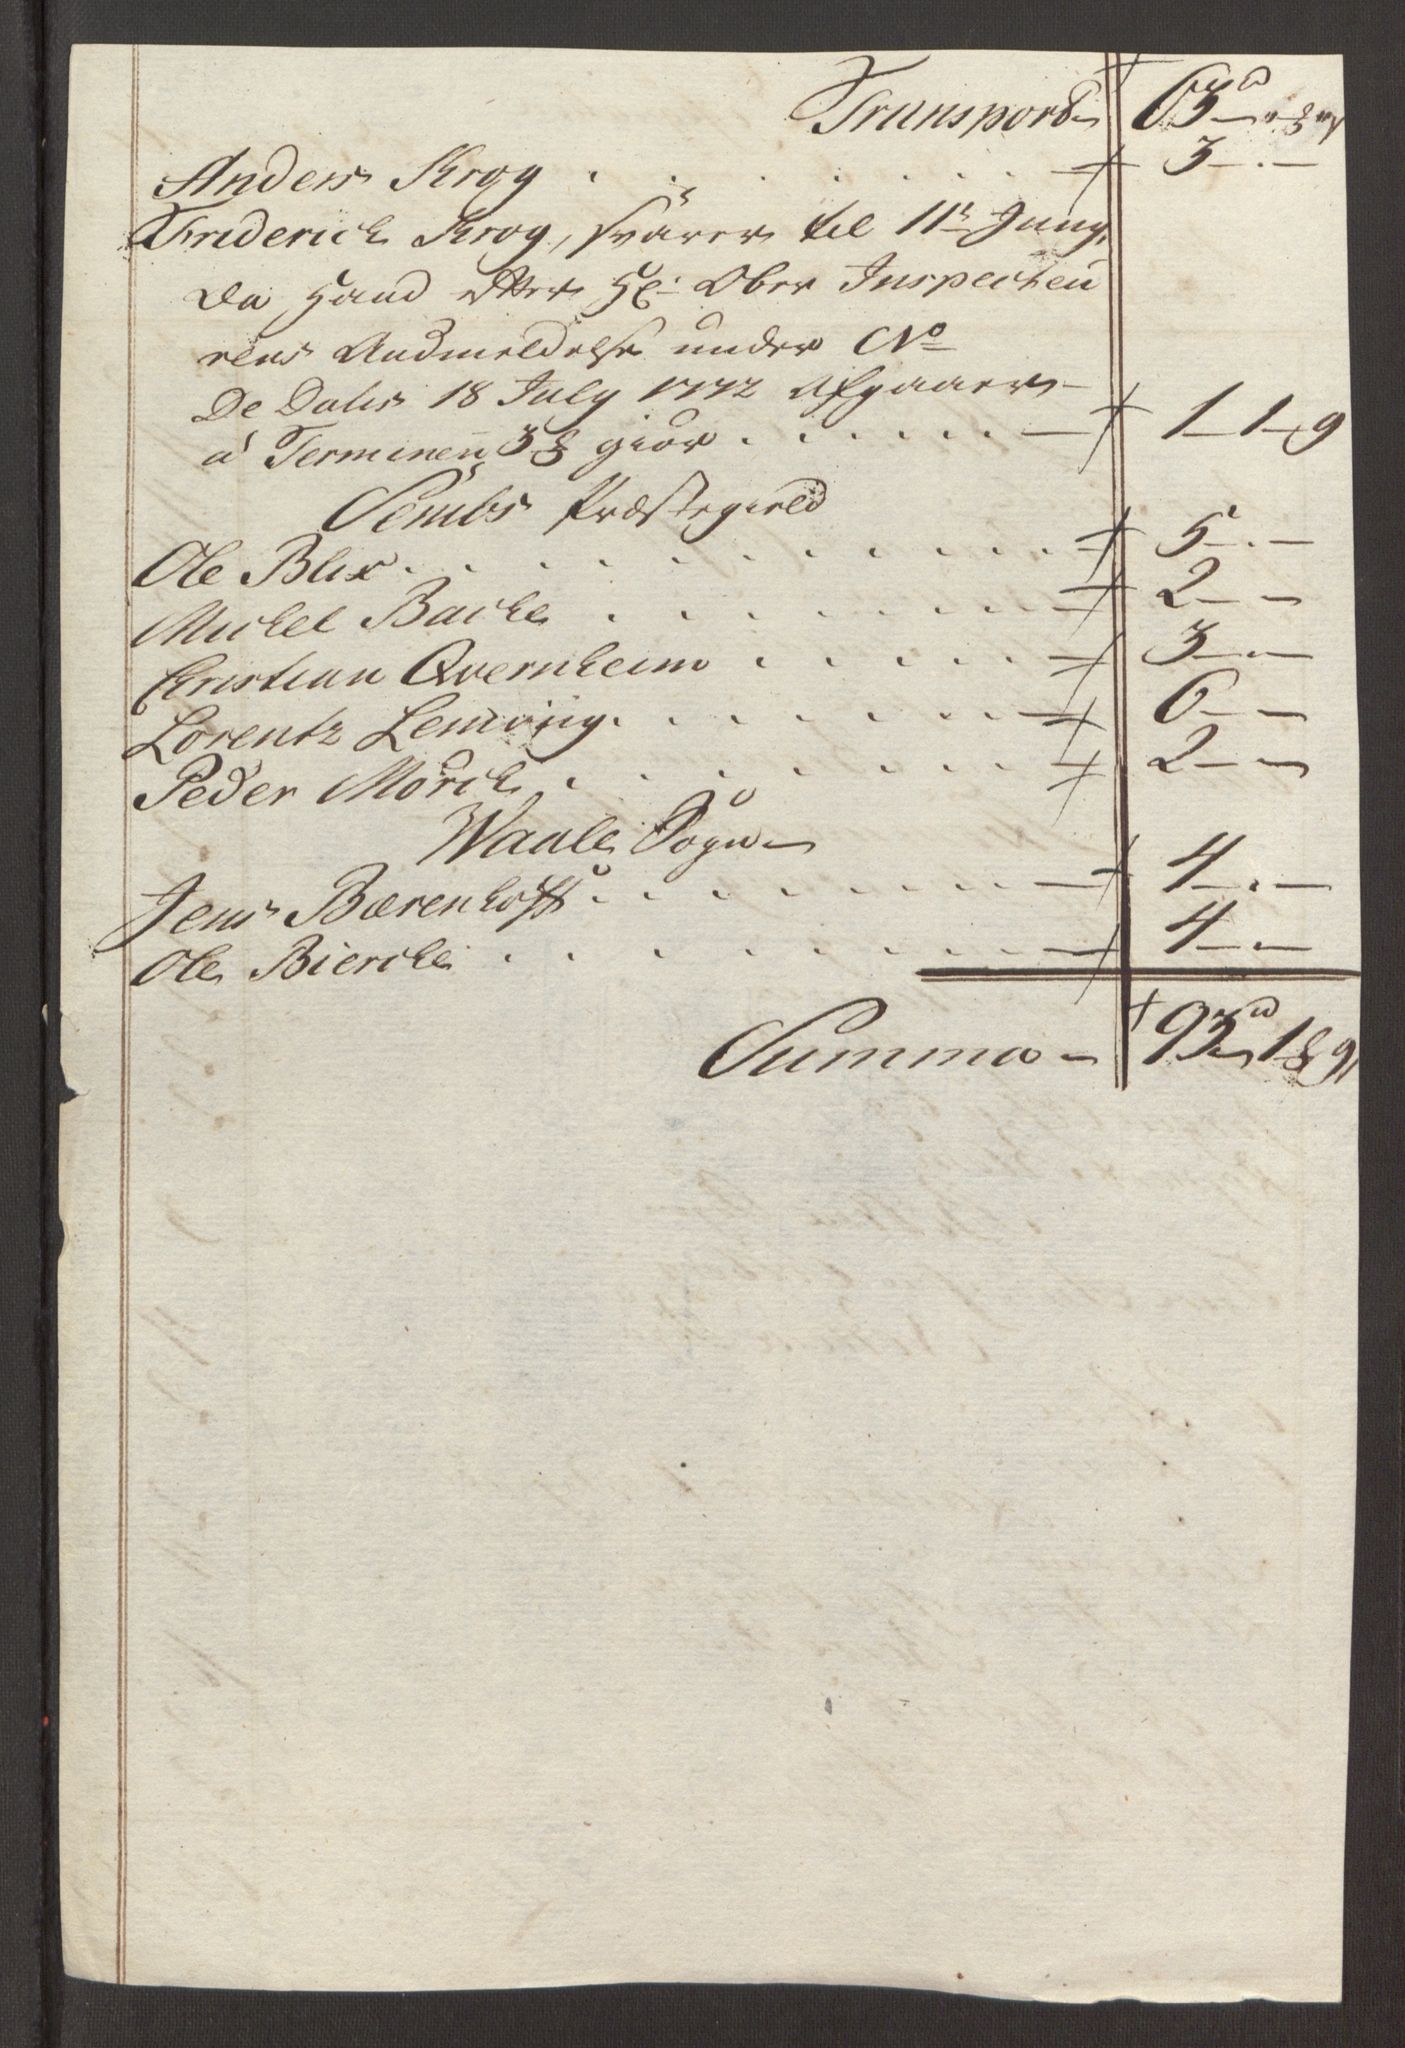 Transport 63
Anders Krog 3 - . -
Friderich Krog, svarer til 11te Juny,
da Hand efter Hr. Ober Inspecteu
rens Andmeldelse under No
De Dato 18 July 1772 Afgaaer
á Terminen 3 ß giør 1 - 1 - 9
Sembs Præstegield
Ole Blix 5 - . -
Michel Backe 2 - -
Christian Qvernheim 3 - . -
Lorentz Lemvig 6 - -
Peder Mörch 2 - -
Waale Sogn
Jens Bærenhofft 4 - . -
Ole Biercke 4 - . -
Summa 93 1 ß 9